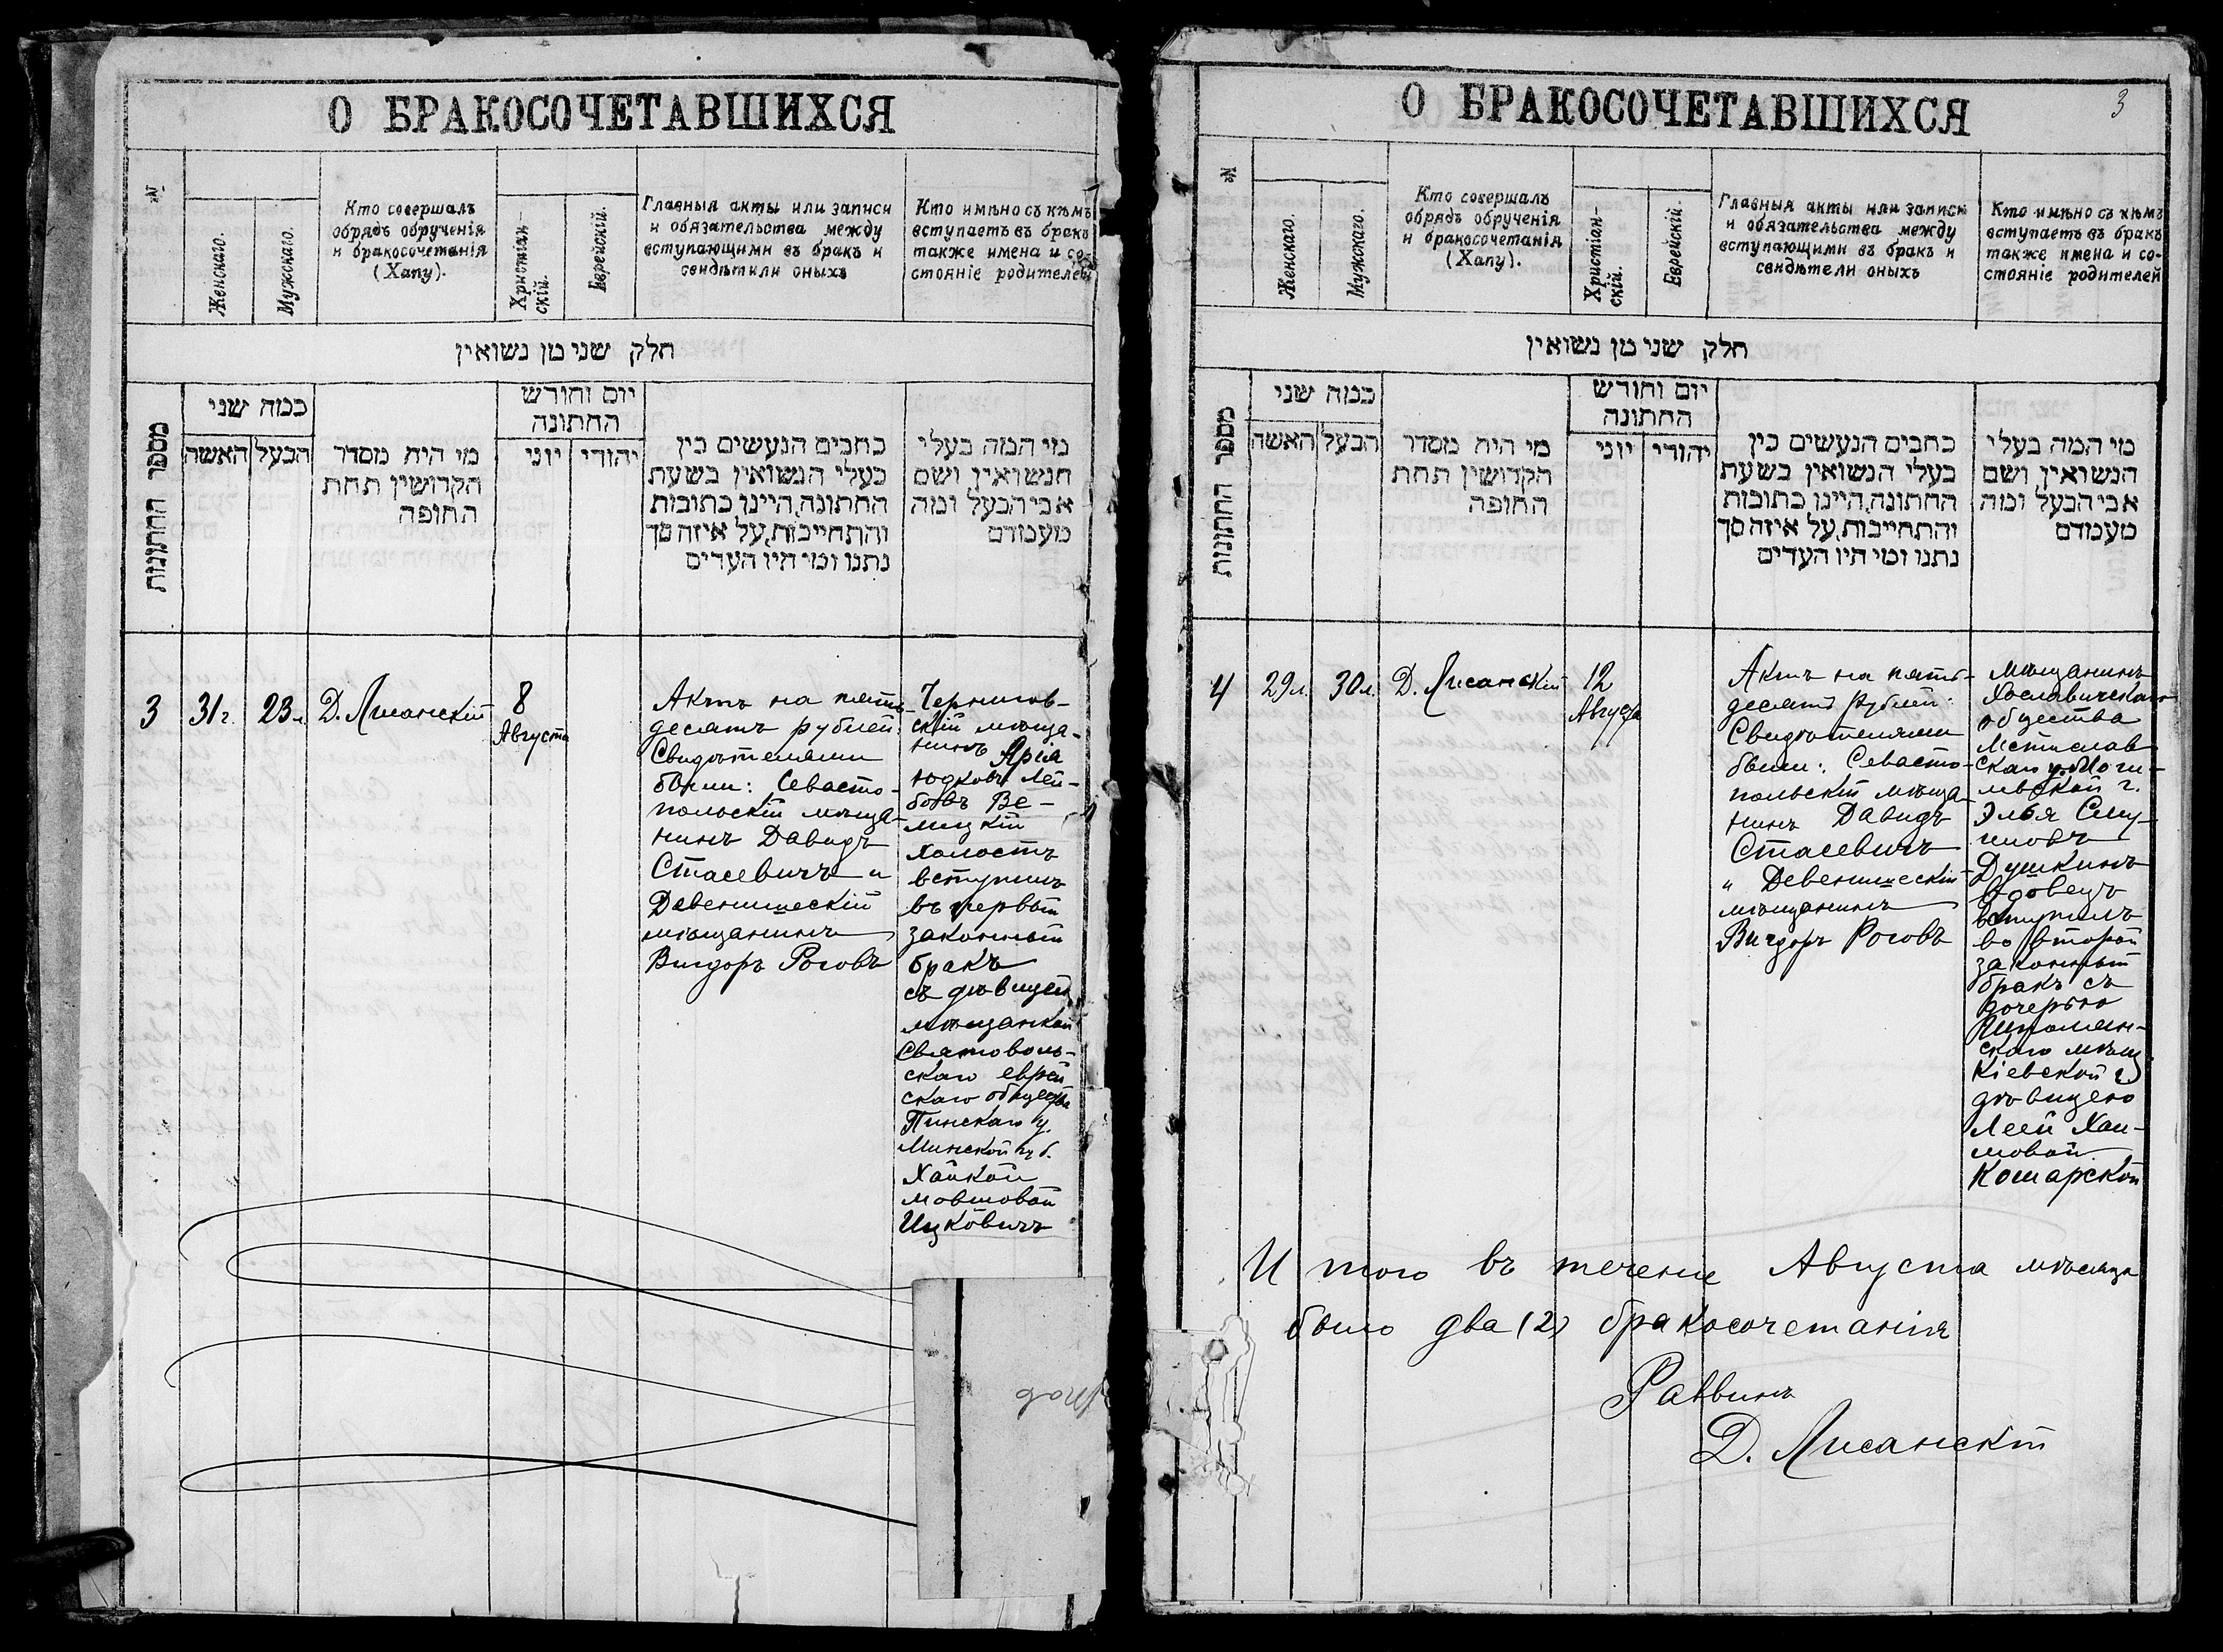 О БРАКОСОЧЕТАВШИХСЯ
№
Женскаго.
Мужскаго.
Кто совершалъ
обрядъ обрученія
и бракосочетанія
(Хапу).
Христіан-
скій.
Еврейскій.
Главныя акты или записи
и обязательства между
вступающими въ бракъ и
свидѣтили оныхъ
Кто имѣно съ кѣмъ
вступаетъ въ бракъ
также имена и со-
стояніе родителей
חלק שני מן נשואין
מספר החתונות
כמה שני
האשה
הבעל
מי היה מסדר
הקדושין תחת
החופה
יום וחודש
החתונה
יוני
יהודי
כתבים הנעשים בין
בעלי הנשואין בשעת
החתונה, היינו כתובות
והתחייבות, על איזה סך
נתנו ומי היו העדים
מי המה בעלי
הנשואין ושם
אבי הבעל ומה
מעמדם
3
31 г.
23 л.
Д. Лисанскій
8
Августа
Актъ на пять-
десятъ рублей:
Свидѣтелями
были: Севасто-
польскій мѣща-
нинъ Давидъ
Стасевичъ и
Девенишескій
мѣщанинъ
Вигдоръ Роговъ
Чернигов-
скій мѣща-
нинъ Арія
Юдковъ Лей-
бовъ Ве-
лицкій
холостъ
вступилъ
въ первый
законный
бракъ
съ дѣвицей
мѣщанкой
Святоволь-
скаго еврей
скаго общества
Пинскаго у.
Минской губ.
Хайкой
Мовшовой
Ицковичъ
дочер
О БРАКОСОЧЕТАВШИХСЯ
3
№
Женскаго.
Мужскаго.
Кто совершалъ
обрядъ обрученія
и бракосочетанія
(Хапу).
Христіан-
скій.
Еврейскій.
Главныя акты или записи
и обязательства между
вступающими въ бракъ и
свидѣтели оныхъ
Кто имѣно съ кѣмъ
вступаетъ въ бракъ
также имена и со-
стояніе родителей
חלק שני מן נשואין
מספר החתונות
כמה שני
האשה
הבעל
מי היה מסדר
הקדושין תחת
החופה
יום וחודש
החתונה
יוני
יהודי
כתבים הנעשים בין
בעלי הנשואין בשעת
החתונה, היינו כתובות
והתחייבות, על איזה סך
נתנו ומי היו העדים
מי המה בעלי
הנשואין ושם
אבי הבעל ומה
מעמדם
4
29 л.
30 л.
Д. Лисанскій
12
Августа
Актъ на пять-
десятъ рублей:
Свидѣтелями
были: Севасто-
польскій мѣща-
нинъ Давидъ
Стасевичъ
и Девенишескій
мѣщанинъ
Вигдоръ Роговъ
мѣщанинъ
Хославичскаго
общества
Мстислав-
скаго у. Моги-
левской г.
Элья
Душкинъ
вдовецъ
вступилъ
во второй
законный
бракъ съ
дочерью
скаго мѣщ.
Кіевской г.
дѣвицею
Леей Хаи-
мовой
Комарской
И того въ теченіе Августа мѣсяца
было два (2) бракосочетанія
Раввинъ
Д. Лисанскій